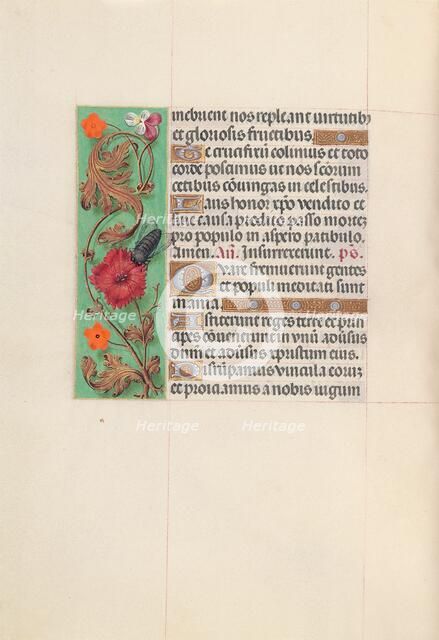 inebuent nos repleant virtutibꝫ
et gloriosis fructibus.
Te crucifixū colimus et toto
corde poscimus ut nos scorum
cetibus cōiungas in celestibus.
Laus honor xp̄o vendito et
sine causa prodito passo mortez
pro populo in aspero patibulo.
Amen. Añ. Insurrexerunt. pō.
Quare fremuerunt gentes
et populi meditati sunt
inania.
Astiterunt reges terre et prin
cipes cōuenerunt in vnū aduersus
dn̄m et aduersus xpristum eius.
Disrūpamus vincula eorū
et proiciamus a nobis iugum
Heritage
Heritage
Heritage
Heritage
Heritage
Heritage